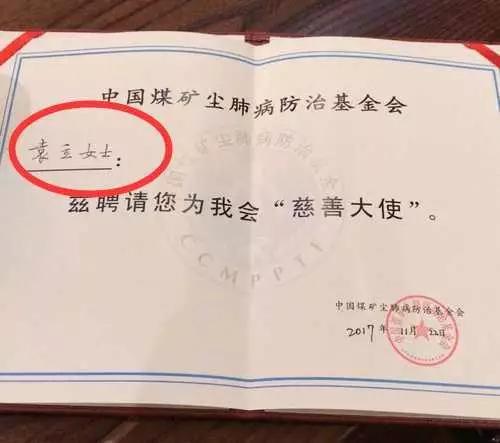 中国煤矿尘肺病防治基金会
袁立女士：
兹聘请您为我会“慈善大使”。
中国煤矿尘肺病防治基金会
2017年11月22日
CCMPPTF